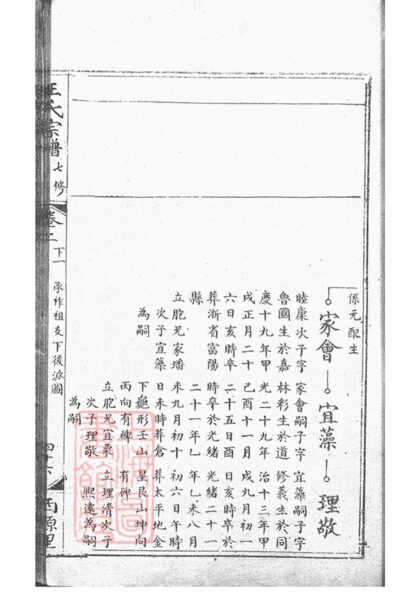 係元配生
家會 宜藻 理敬
睦康次子字
魯國生於嘉
慶十九年甲
戌正月二十
六日亥時卒
葬浙省富陽
縣
立胞兄家璠
次子宜藻
為嗣
家會嗣子字
林彩生於道
光二十九年
己酉十一月
二十五日酉
時卒於光緒
二十一年乙
未九月初十
日未時葬倉
下龜形壬山
丙向有碑
立胞兄宜粟
次子理敬
為嗣
宜藻嗣子字
修義生於同
治十三年甲
戌九月初一
日亥時卒於
光緒二十一
年乙未八月
初六日午時
葬太平地金
星艮山坤向
有碑
立理清次子
熙遠為嗣
王氏宗譜 七修
卷二 下一
承祚祖支下後派圖
西源里